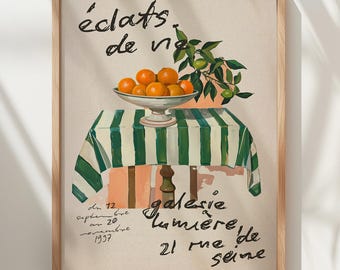 éclats
de vie
du 12
septembre
au 20
novembre
1997
galerie
lumière
21 rue de
seine